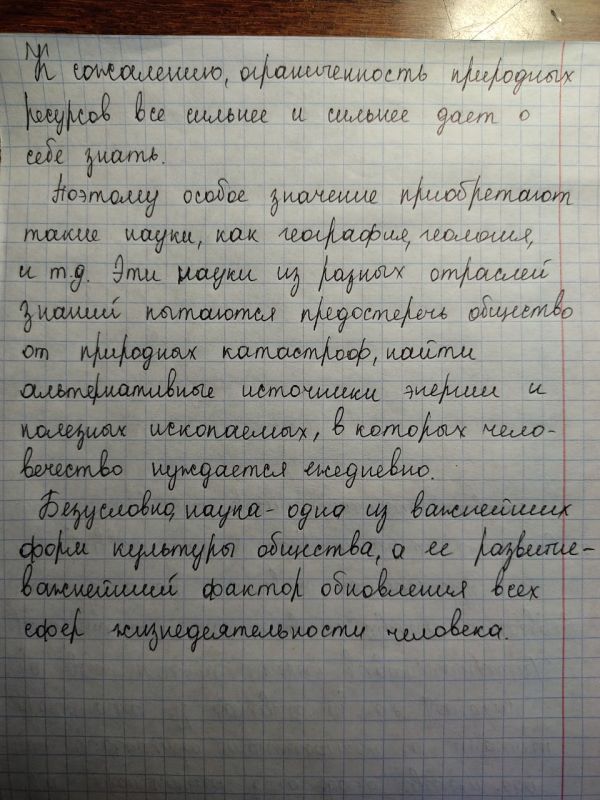 К сожалению, ограниченность природных
ресурсов все сильнее и сильнее дает о
себе знать.
Поэтому особое значение приобретают
такие науки, как география, геология,
и т.д. Эти науки из разных отраслей
знаний пытаются предостеречь общество
от природных катастроф, найти
альтернативные источники энергии и
полезных ископаемых, в которых чело-
вечество нуждается ежедневно.
Безусловно, наука - одна из важнейших
форм культуры общества, а ее развитие -
важнейший фактор обновления всех
сфер жизнедеятельности человека.